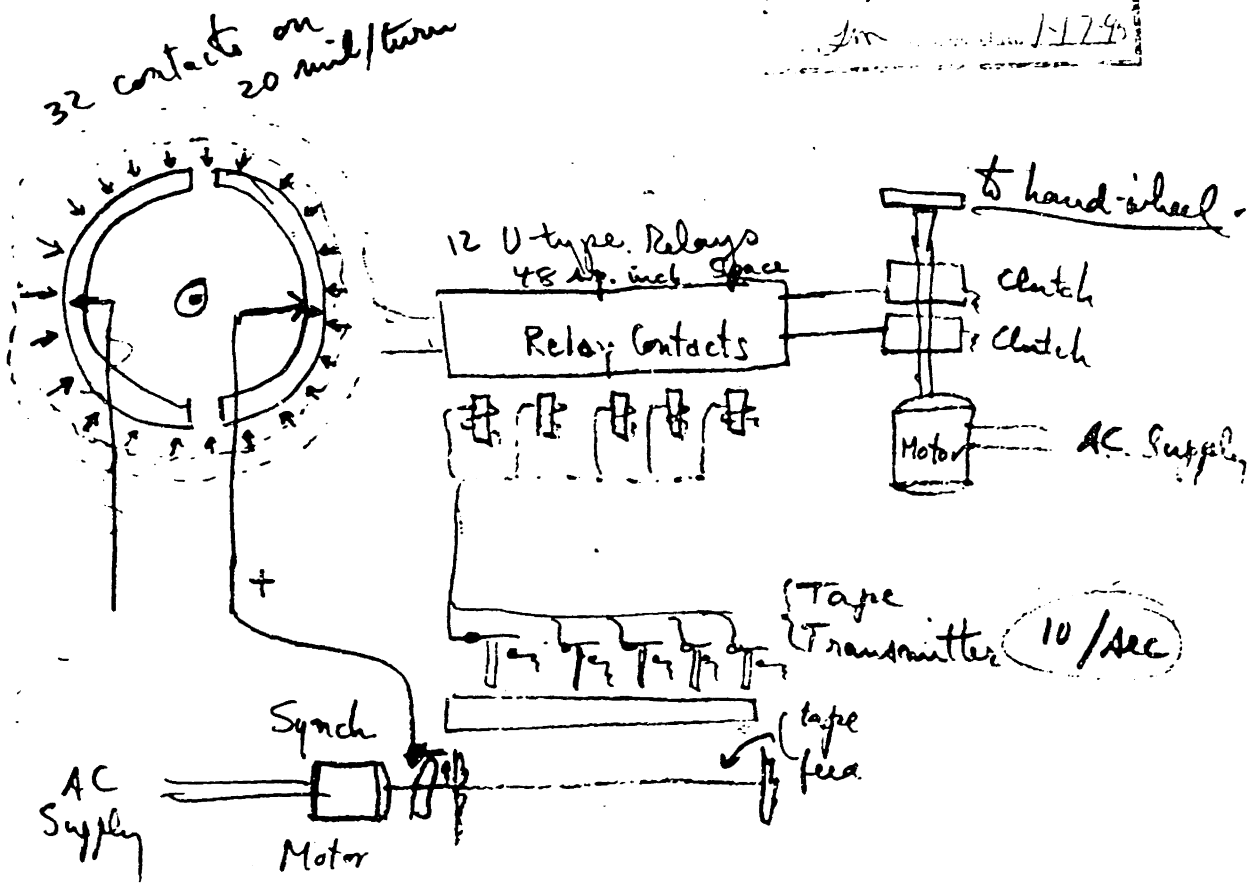 32 contacts on
20 mil/turn
1-17-45
to hand-wheel.
12 U-type Relays
48 sq. inch Space
Relay Contacts
Clutch
Clutch
Motor
AC. Supply
+
Tape
Transmitter
10/sec
tape
feed
Synch
Motor
AC
Supply